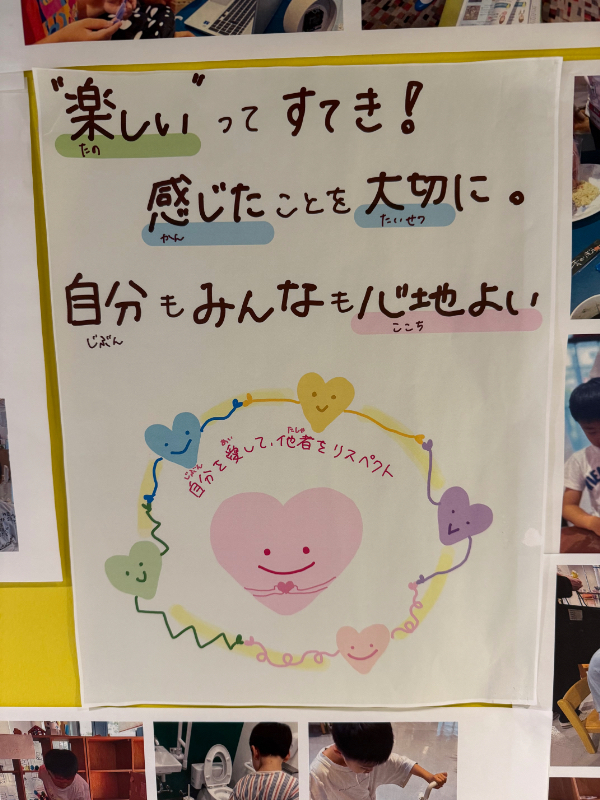 "楽しい"って すてき!
たの
感じたことを大切に。
かん たいせつ
自分もみんなも心地よい
じぶん ここち
自分を愛して、他者をリスペクト
じぶん あい たしゃ